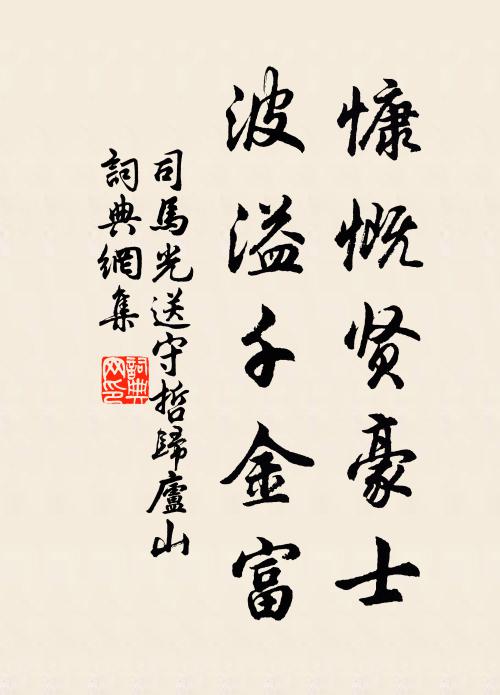 慷慨贤豪士
波溢千金富
司馬光送守哲歸廬山
詞典網集
詞典
网印